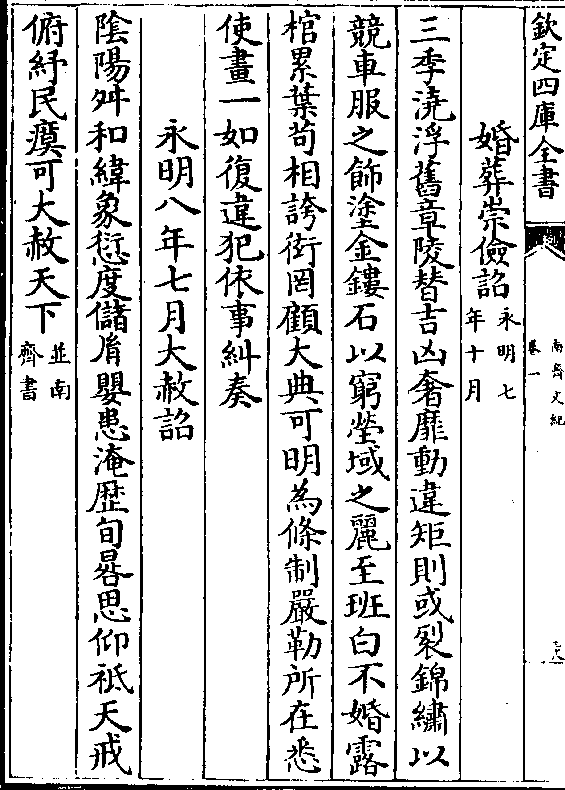 欽定四庫全書
南齊文紀
卷一
婚葬崇儉詔永明七
年十月
三季澆浮舊章陵替吉凶奢靡動違矩則或裂錦繡以
競車服之飾塗金鏤石以窮塋域之麗至班白不婚露
棺累葉苟相誇衒罔顧大典可明為條制嚴勒所在悉
使畫一如復違犯依事糾奏
永明八年七月大赦詔
陰陽舛和緯象愆度儲胤嬰患淹歴旬晷思仰祗天戒
俯紓民瘼可大赦天下並南
齊書